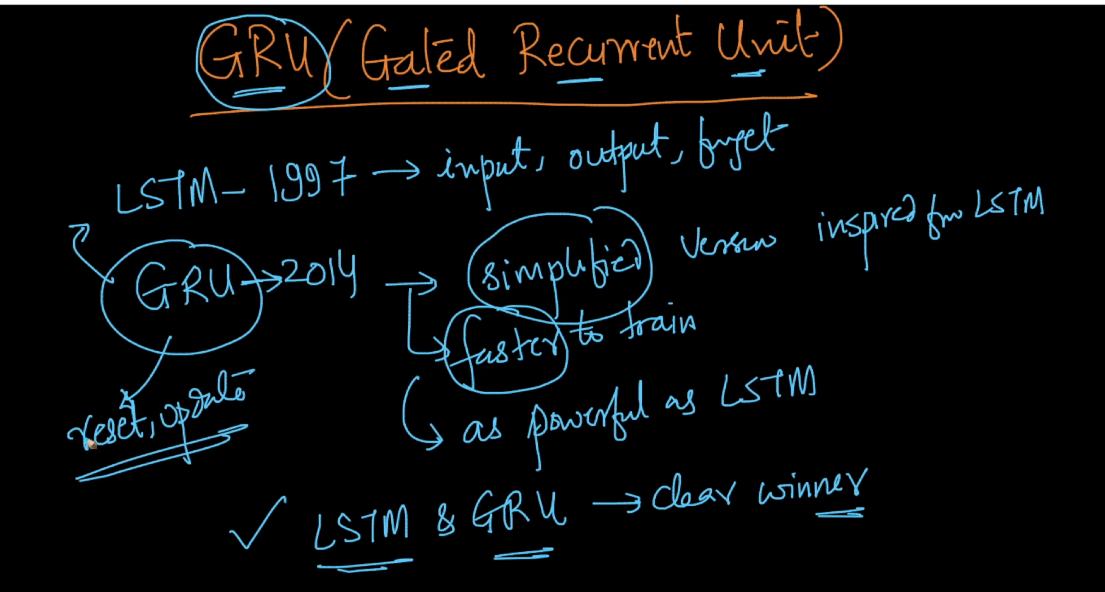 GRU (Gated Recurrent Unit)
LSTM - 1997 → input, output, forget
GRU → 2014 → simplified version inspired from LSTM
faster to train
as powerful as LSTM
reset, update
✓ LSTM & GRU → clear winner